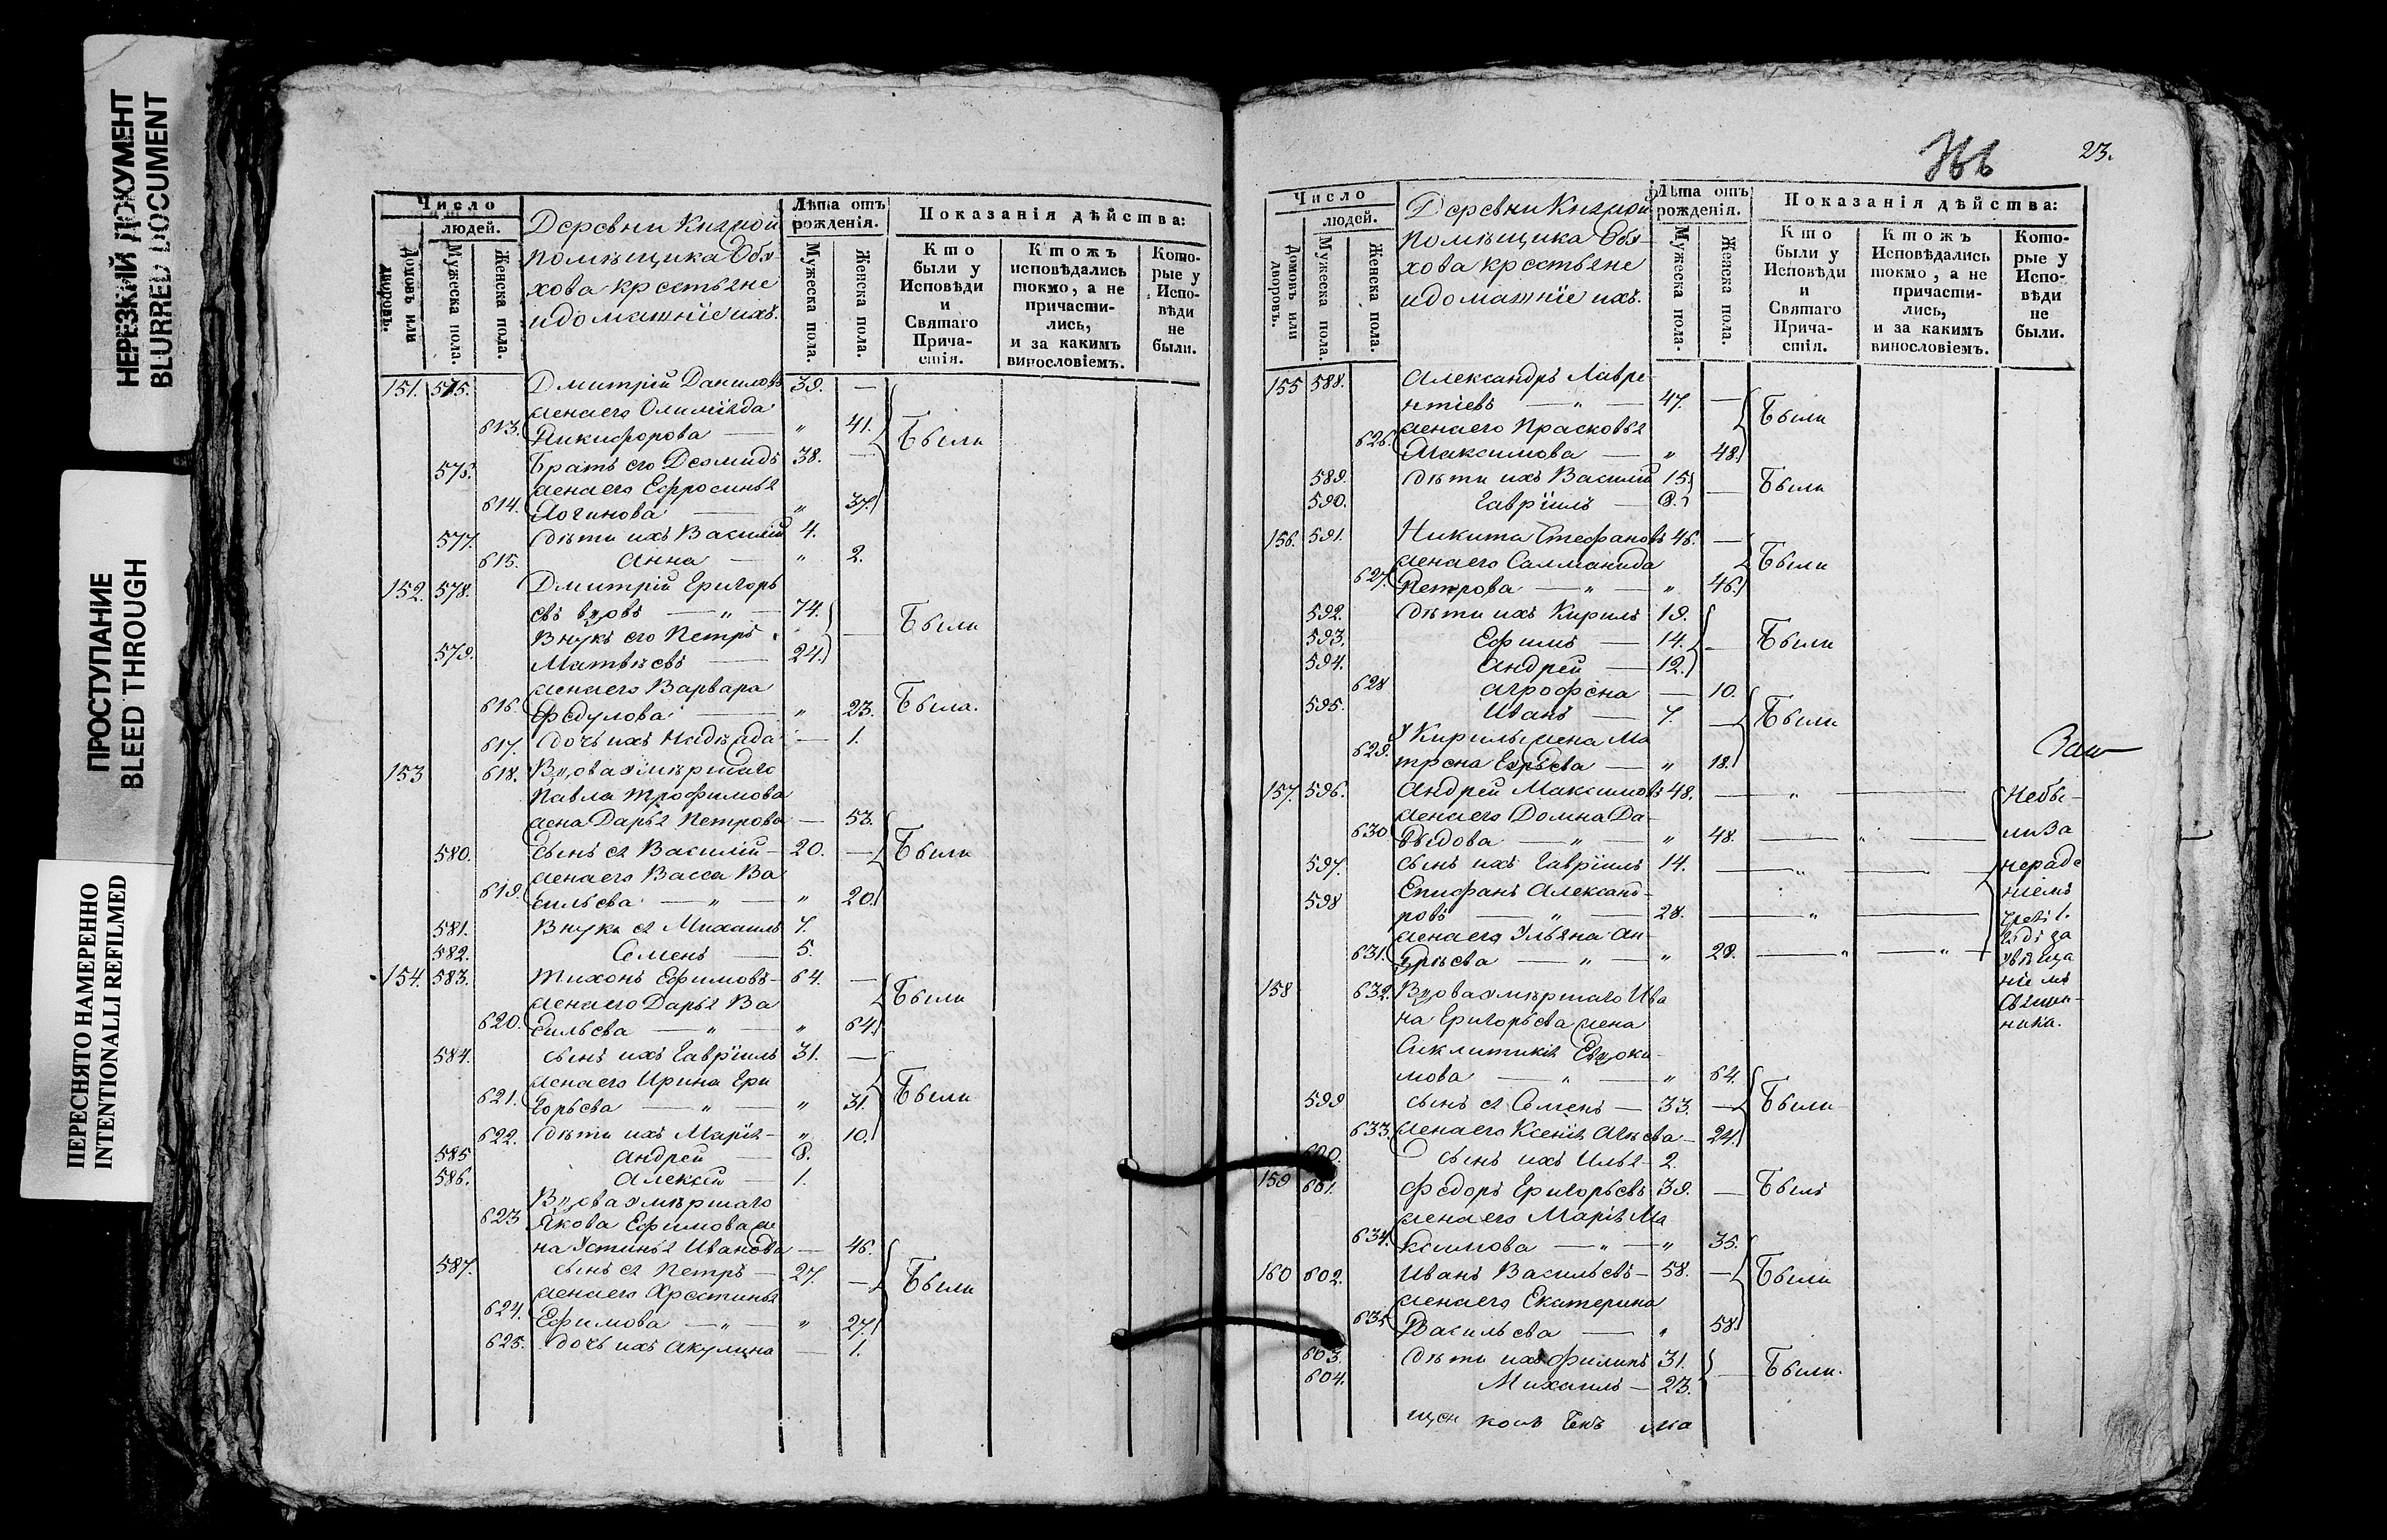 НЕРЕЗКИЙ ДОКУМЕНТ
BLURRED DOCUMENT
ПРОСТУПАНИЕ
BLEED THROUGH
ПЕРЕСНЯТО НАМЕРЕННО
INTENTIONALLI REFILMED
Число
людей.
Домовъ или дворовъ.
Мужеска пола.
Женска пола.
Деревни Княжой
помѣщика Обу-
хова крестьяне
и домашніе ихъ.
Лѣта отъ рожденія.
Мужеска пола.
Женска пола.
Показанія дѣйства:
Кто были у Исповѣди и Святаго Прича-стія.
Ктожъ исповѣдались токмо, а не причасти-лись, и за какимъ винословіемъ.
Кото-рые у Испо-вѣди не были.
151. 575. Дмитрій Даниловъ 39. —
жена его Олимпіада
613. Никифорова — „ 41. Были
576. Братъ его Деомидъ 38. —
жена его Ефросинья
614. Логинова — „ 37.
577. Дѣти ихъ Василій 4.
615. Анна — „ 2.
152. 578. Дмитрій Григорь
евъ вдовъ — „ — 74. — Были
Внукъ его Петръ
579. Матвѣевъ — 24.
жена его Варвара
616. Федулова — „ 23. Была.
617. Дочь ихъ Надежда — 1.
153 618. Вдова умершаго
Павла Трофимова
жена Дарья Петрова — 53.
580. Сынъ ея Василій — 20. — Были
жена его Васса Ва
619. сильева — „ — „ 20.
581. Внуки ея Михаилъ 7.
582. Семенъ — 5.
154. 583. Тихонъ Ефимовъ — 64. —
жена его Дарья Ва Были
620. сильева — „ — „ 64.
584. Сынъ ихъ Гавріилъ 31. —
жена его Ирина Гри
621. горьева — „ — „ 31. Были
622. Дѣти ихъ Марія — „ 10.
585 Андрей — 8.
586. Алексій — 1.
Вдова умершаго
623 Якова Ефимова же
на Устинья Иванова — 46.
587. Сынъ ея Петръ — 27. — Были
жена его Хрестинья
624. Ефимова — „ — „ 27.
625. Дочь ихъ Акулина — 1.
23.
Число
людей.
Домовъ или дворовъ.
Мужеска пола.
Женска пола.
Деревни Княжой
помѣщика Обу-
хова крестьяне
и домашніе ихъ.
Лѣта отъ рожденія.
Мужеска пола.
Женска пола.
Показанія дѣйства:
Кто были у Исповѣди и Святаго Прича-стія.
Ктожъ Исповѣдались токмо, а не причасти-лись, и за какимъ винословіемъ.
Кото-рые у Испо-вѣди не были.
155 588. Александръ Лавре-
нтіевъ — „ — 47. — Были
жена его Прасковья
626. Максимова — „ 48.
589. Дѣти ихъ Василій 15. — Были
590. Гавріилъ — 8.
156. 591. Никита Стефановъ 46. —
жена его Саломанида Были
627. Петрова — „ — „ 46.
592. Дѣти ихъ Кирилъ 19.
593. Ефимъ — 14. — Были
594. Андрей — 12.
628 Агрофена — 10.
595. Иванъ — 7. — Были
У Кирилы жена Ма
629. трена Юрьева — „ 18.
157. 596. Андрей Максимовъ 48. — „ — Небы-
жена его Домна Да-
630 выдова — „ — „ 48. — „ — ли за
597. Сынъ ихъ Гавріилъ 14. — „ — нераде
Епифанъ Александ- ніемъ
598 ровъ — „ — 28. — „ —
жена его Ульяна Ан-
631. дреева — „ — „ 28. — „ — „
158 632. Вдова умершаго Ива
на Григорьева жена
Сиклитикія Евдоки-
мова — „ — „ 64.
599 Сынъ ея Семенъ — 33. — Были
633. жена его Ксенія — 24.
600. Сынъ ихъ Илья — 2.
159 601. Федоръ Григорьевъ 39. — Былъ
жена его Марія Ма
634. ксимова — „ — „ 35.
160 602. Иванъ Васильевъ — 58. — Были
жена его Екатерина
635 Васильева — „ 58.
603. Дѣти ихъ Филипъ 31. — Были.
604. Михаилъ — 23.